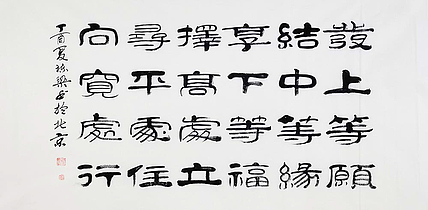 發上等願
結中等緣
享下等福
擇高處立
尋平處住
向寬處行
丁酉夏梁书於北京